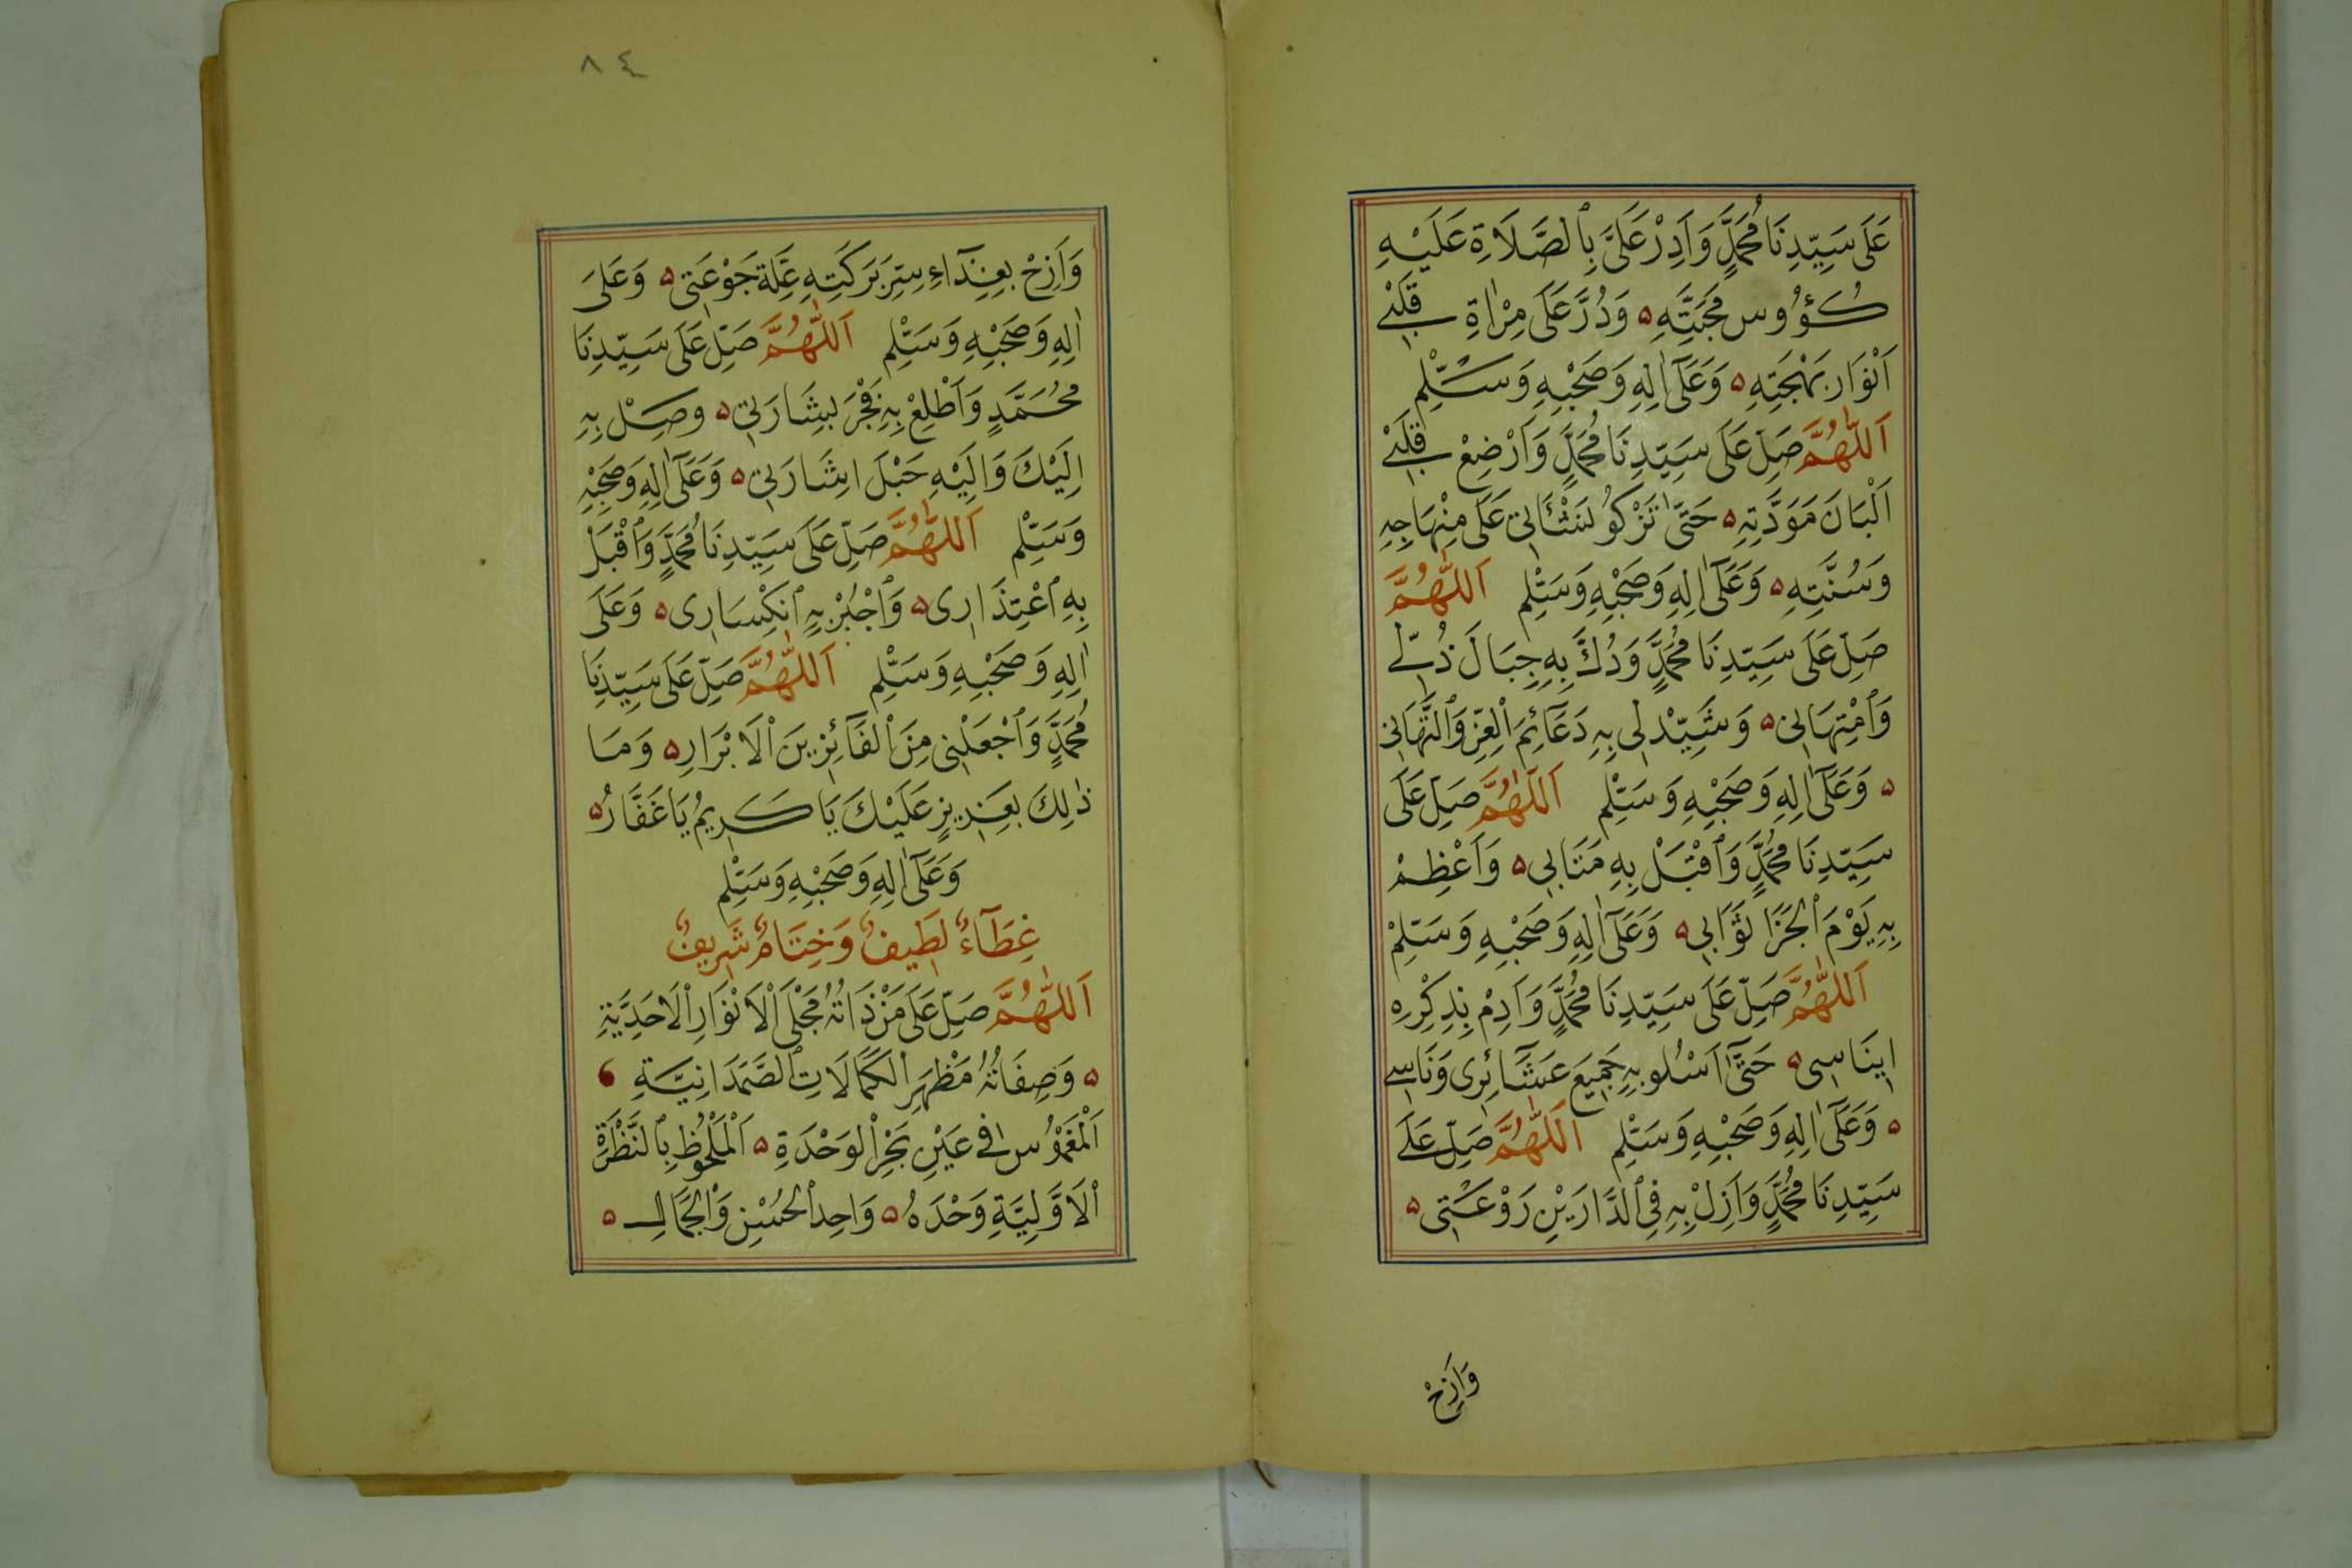 عَلَى سَيِّدِنَا مُحَمَّدٍ وَاَدِرْ عَلَيَّ بِٱلصَّلَاةِ عَلَيْهِ
كُؤُوس مَحَبَّتِهِ ۵ وَدُرَّ عَلَى مِرْاٰةِ قَلْبِي
اَنْوَارَ بَهْجَتِهِ ۵ وَعَلَىٰٓ اٰلِهِ وَصَحْبِهِ وَسَلِّمْ
اَللّٰهُمَّ صَلِّ عَلَى سَيِّدِنَا مُحَمَّدٍ وَاَرْضِعْ قَلْبِي
اَلْبَانَ مَوَدَّتِهِ ۵ حَتّىٰ تَزْكُو نَشْأَتِي عَلَى مِنْهَاجِهِ
وَسُنَّتِهِ ۵ وَعَلَىٰٓ اٰلِهِ وَصَحْبِهِ وَسَلِّمْ اَللّٰهُمَّ
صَلِّ عَلَى سَيِّدِنَا مُحَمَّدٍ وَدُكَّ بِهِ جِبَالَ ذُلِّي
وَٱمْتِهَانِي ۵ وَشَيِّدْ لِى بِهِ دَعَآئِمَ ٱلْعِزِّ وَٱلتَّهَانِي
۵ وَعَلَىٰٓ اٰلِهِ وَصَحْبِهِ وَسَلِّمْ اَللّٰهُمَّ صَلِّ عَلَى
سَيِّدِنَا مُحَمَّدٍ وَٱقْبَلْ بِهِ مَتَابِي ۵ وَاَعْظِمْ
بِهِ يَوْمَ ٱلْجَزَا ثَوَابِي ۵ وَعَلَىٰٓ اٰلِهِ وَصَحْبِهِ وَسَلِّمْ
اَللّٰهُمَّ صَلِّ عَلَى سَيِّدِنَا مُحَمَّدٍ وَاَدِمْ بِذِكْرِهِ
اِينَاسِى ۵ حَتّىٰٓ اَسْلُو بِهِ جَمِيعَ عَشَآئِرِى وَنَاسِي
۵ وَعَلَىٰٓ اٰلِهِ وَصَحْبِهِ وَسَلِّمْ اَللّٰهُمَّ صَلِّ عَلَى
سَيِّدِنَا مُحَمَّدٍ وَاَزِلْ بِهِ فِي ٱلدَّارَيْنِ رَوْعَتِي ۵
وَاَزِحْ
٨٤
وَاَزِحْ بِغِذَآءِ سِرِّ بَرَكَتِهِ غُلَّةَ جَوْعَتِي ۵ وَعَلَى
اٰلِهِ وَصَحْبِهِ وَسَلِّمْ اَللّٰهُمَّ صَلِّ عَلَى سَيِّدِنَا
مُحَمَّدٍ وَاَطْلِعْ بِهِ فَجْرَ بِشَارَتِي ۵ وَصِلْ بِهِ
اِلَيْكَ وَاِلَيْهِ حَبْلَ اِشَارَتِي ۵ وَعَلَىٰٓ اٰلِهِ وَصَحْبِهِ
وَسَلِّمْ اَللّٰهُمَّ صَلِّ عَلَى سَيِّدِنَا مُحَمَّدٍ وَٱقْبَلْ
بِهِ ٱعْتِذَارِى ۵ وَٱجْبُرْ بِهِ ٱنْكِسَارِى ۵ وَعَلَى
اٰلِهِ وَصَحْبِهِ وَسَلِّمْ اَللّٰهُمَّ صَلِّ عَلَى سَيِّدِنَا
مُحَمَّدٍ وَٱجْعَلْنِى مِنَ ٱلْفَآئِزِينَ ٱلْاَبْرَارِ ۵ وَمَا
ذٰلِكَ بِعَزِيزٍ عَلَيْكَ يَا كَرِيمُ يَا غَفَّارُ ۵
وَعَلَىٰٓ اٰلِهِ وَصَحْبِهِ وَسَلِّمْ
غِطَآءٌ لَطِيفٌ وَخِتَامٌ شَرِيفٌ
اَللّٰهُمَّ صَلِّ عَلَى مَنْ ذَاتُهُ مَجْلَى ٱلْاَنْوَارِ ٱلْاَحَدِيَّةِ
۵ وَصِفَاتُهُ مَظْهَرُ ٱلْكَمَالَاتِ ٱلصَّمَدَانِيَّةِ
اَلْمَغْمُوسِ فِى عَيْنِ بَحْرِ ٱلْوَحْدَةِ ۵ اَلْمَلْحُوظِ بِٱلنَّظْرَةِ
ٱلْاَوَّلِيَّةِ وَحْدَهُ ۵ وَاحِدِ ٱلْحُسْنِ وَٱلْجَمَالِ ۵